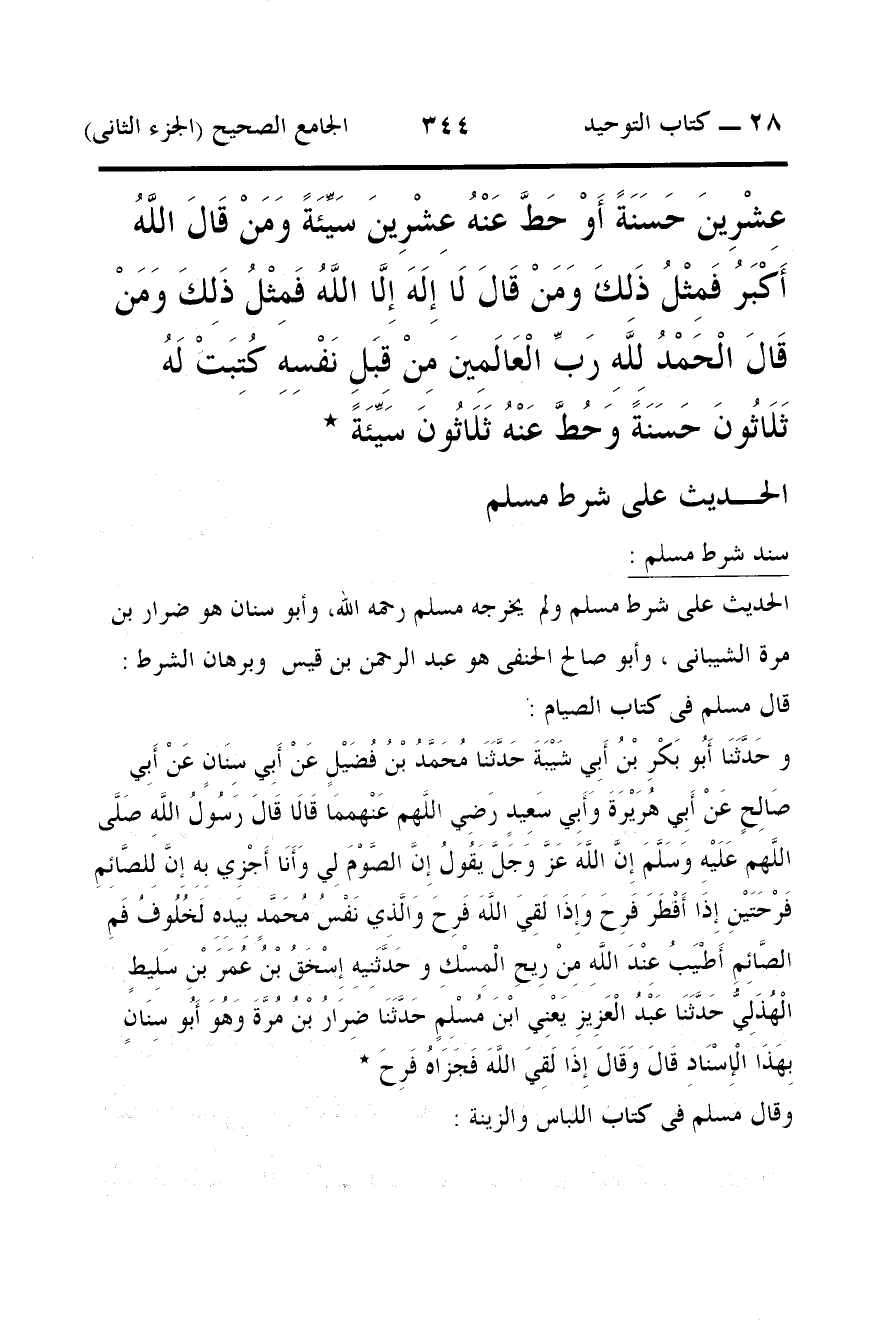 ٢٨ ــ كتاب التوحيد ٣٤٤ الجامع الصحيح (الجزء الثانى)
عِشْرِينَ حَسَنَةً أَوْ حَطَّ عَنْهُ عِشْرِينَ سَيِّئَةً وَمَنْ قَالَ اللَّهُ
أَكْبَرُ فَمِثْلُ ذَلِكَ وَمَنْ قَالَ لَا إِلَهَ إِلَّا اللَّهُ فَمِثْلُ ذَلِكَ وَمَنْ
قَالَ الْحَمْدُ لِلَّهِ رَبِّ الْعَالَمِينَ مِنْ قِبَلِ نَفْسِهِ كُتِبَتْ لَهُ
ثَلَاثُونَ حَسَنَةً وَحُطَّ عَنْهُ ثَلَاثُونَ سَيِّئَةً *
الحـــديث على شرط مسلم
سند شرط مسلم :
الحديث على شرط مسلم ولم يخرجه مسلم رحمه الله، وأبو سنان هو ضرار بن
مرة الشيبانى ، وأبو صالح الحنفى هو عبد الرحمن بن قيس وبرهان الشرط :
قال مسلم فى كتاب الصيام :
و حَدَّثَنَا أَبُو بَكْرِ بْنُ أَبِي شَيْبَةَ حَدَّثَنَا مُحَمَّدُ بْنُ فُضَيْلٍ عَنْ أَبِي سِنَانٍ عَنْ أَبِي
صَالِحٍ عَنْ أَبِي هُرَيْرَةَ وَأَبِي سَعِيدٍ رَضِي اللَّهم عَنْهممَا قَالَا قَالَ رَسُولُ اللَّهِ صَلَّى
اللَّهم عَلَيْهِ وَسَلَّمَ إِنَّ اللَّهَ عَزَّ وَجَلَّ يَقُولُ إِنَّ الصَّوْمَ لِي وَأَنَا أَجْزِي بِهِ إِنَّ لِلصَّائِمِ
فَرْحَتَيْنِ إِذَا أَفْطَرَ فَرِحَ وَإِذَا لَقِيَ اللَّهَ فَرِحَ وَالَّذِي نَفْسُ مُحَمَّدٍ بِيَدِهِ لَخُلُوفُ فَمِ
الصَّائِمِ أَطْيَبُ عِنْدَ اللَّهِ مِنْ رِيحِ الْمِسْكِ و حَدَّثَنِيهِ إِسْحَقُ بْنُ عُمَرَ بْنِ سَلِيطٍ
الْهُذَلِيُّ حَدَّثَنَا عَبْدُ الْعَزِيزِ يَعْنِي ابْنَ مُسْلِمٍ حَدَّثَنَا ضِرَارُ بْنُ مُرَّةَ وَهُوَ أَبُو سِنَانٍ
بِهَذَا الْإِسْنَادِ قَالَ وَقَالَ إِذَا لَقِيَ اللَّهَ فَجَزَاهُ فَرِحَ *
وقال مسلم فى كتاب اللباس والزينة :